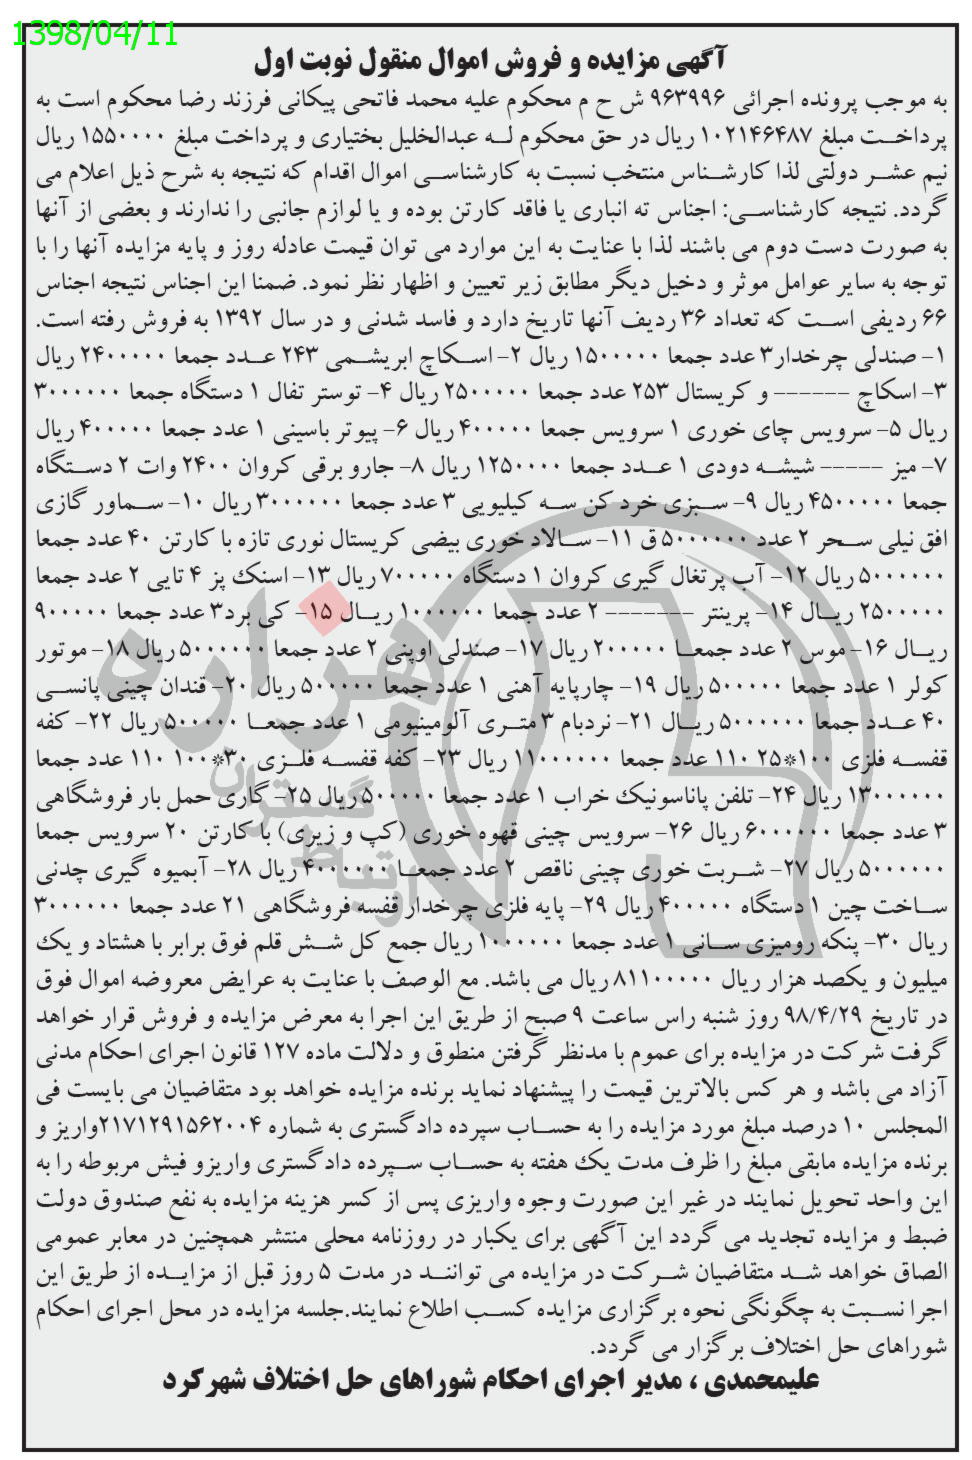 1398/04/11
آگهی مزایده و فروش اموال منقول نوبت اول
به موجب پرونده اجرائی ۹۶۳۹۹۶ ش ح م محکوم علیه محمد فاتحی پیکانی فرزند رضا محکوم است به
پرداخت مبلغ ۱۰۲۱۴۶۴۸۷ ریال در حق محکوم له عبدالخلیل بختیاری و پرداخت مبلغ ۱۵۵۰۰۰۰ ریال
نیم عشر دولتی لذا کارشناس منتخب نسبت به کارشناسی اموال اقدام که نتیجه به شرح ذیل اعلام می
گردد. نتیجه کارشناسی: اجناس ته انباری یا فاقد کارتن بوده و یا لوازم جانبی را ندارند و بعضی از آنها
به صورت دست دوم می باشند لذا با عنایت به این موارد می توان قیمت عادله روز و پایه مزایده آنها را با
توجه به سایر عوامل موثر و دخیل دیگر مطابق زیر تعیین و اظهار نظر نمود. ضمنا این اجناس نتیجه اجناس
۶۶ ردیفی است که تعداد ۳۶ ردیف آنها تاریخ دارد و فاسد شدنی و در سال ۱۳۹۲ به فروش رفته است.
۱- صندلی چرخدار۳ عدد جمعا ۱۵۰۰۰۰۰ ریال ۲- اسکاچ ابریشمی ۲۴۳ عدد جمعا ۲۴۰۰۰۰۰ ریال
۳- اسکاچ ------ و کریستال ۲۵۳ عدد جمعا ۲۵۰۰۰۰۰ ریال ۴- توستر تفال ۱ دستگاه جمعا ۳۰۰۰۰۰۰
ریال ۵- سرویس چای خوری ۱ سرویس جمعا ۴۰۰۰۰۰ ریال ۶- پیوتر باسینی ۱ عدد جمعا ۴۰۰۰۰۰ ریال
۷- میز ----- شیشه دودی ۱ عدد جمعا ۱۲۵۰۰۰۰ ریال ۸- جارو برقی کروان ۲۴۰۰ وات ۲ دستگاه
جمعا ۴۵۰۰۰۰۰ ریال ۹- سبزی خرد کن سه کیلیویی ۳ عدد جمعا ۳۰۰۰۰۰۰ ریال ۱۰- سماور گازی
افق نیلی سحر ۲ عدد ۵۰۰۰۰۰۰ ق ۱۱- سالاد خوری بیضی کریستال نوری تازه با کارتن ۴۰ عدد جمعا
۵۰۰۰۰۰۰ ریال ۱۲- آب پرتغال گیری کروان ۱ دستگاه ۷۰۰۰۰۰ ریال ۱۳- اسنک پز ۴ تایی ۲ عدد جمعا
۲۵۰۰۰۰۰ ریال ۱۴- پرینتر ------- ۲ عدد جمعا ۱۰۰۰۰۰۰ ریال ۱۵- کی برد۳ عدد جمعا ۹۰۰۰۰۰
ریال ۱۶- موس ۲ عدد جمعا ۲۰۰۰۰۰ ریال ۱۷- صندلی اوپنی ۲ عدد جمعا ۵۰۰۰۰۰۰ ریال ۱۸- موتور
کولر ۱ عدد جمعا ۵۰۰۰۰۰ ریال ۱۹- چارپایه آهنی ۱ عدد جمعا ۵۰۰۰۰۰ ریال ۲۰- قندان چینی پانسی
۴۰ عدد جمعا ۵۰۰۰۰۰۰ ریال ۲۱- نردبام ۳ متری آلومینیومی ۱ عدد جمعا ۵۰۰۰۰۰ ریال ۲۲- کفه
قفسه فلزی ۱۰۰*۲۵ ۱۱۰ عدد جمعا ۱۱۰۰۰۰۰۰ ریال ۲۳- کفه قفسه فلزی ۳۰*۱۰۰ ۱۱۰ عدد جمعا
۱۳۰۰۰۰۰۰ ریال ۲۴- تلفن پاناسونیک خراب ۱ عدد جمعا ۵۰۰۰۰۰ ریال ۲۵- گاری حمل بار فروشگاهی
۳ عدد جمعا ۶۰۰۰۰۰۰ ریال ۲۶- سرویس چینی قهوه خوری (کپ و زیری) با کارتن ۲۰ سرویس جمعا
۵۰۰۰۰۰۰ ریال ۲۷- شربت خوری چینی ناقص ۲ عدد جمعا ۴۰۰۰۰۰۰ ریال ۲۸- آبمیوه گیری چدنی
ساخت چین ۱ دستگاه ۴۰۰۰۰۰ ریال ۲۹- پایه فلزی چرخدار قفسه فروشگاهی ۲۱ عدد جمعا ۳۰۰۰۰۰۰
ریال ۳۰- پنکه رومیزی سانی ۱ عدد جمعا ۱۰۰۰۰۰۰ ریال جمع کل شش قلم فوق برابر با هشتاد و یک
میلیون و یکصد هزار ریال ۸۱۱۰۰۰۰۰ ریال می باشد. مع الوصف با عنایت به عرایض معروضه اموال فوق
در تاریخ ۹۸/۴/۲۹ روز شنبه راس ساعت ۹ صبح از طریق این اجرا به معرض مزایده و فروش قرار خواهد
گرفت شرکت در مزایده برای عموم با مدنظر گرفتن منطوق و دلالت ماده ۱۲۷ قانون اجرای احکام مدنی
آزاد می باشد و هر کس بالاترین قیمت را پیشنهاد نماید برنده مزایده خواهد بود متقاضیان می بایست فی
المجلس ۱۰ درصد مبلغ مورد مزایده را به حساب سپرده دادگستری به شماره ۲۱۷۱۲۹۱۵۶۲۰۰۴واریز و
برنده مزایده مابقی مبلغ را ظرف مدت یک هفته به حساب سپرده دادگستری واریزو فیش مربوطه را به
این واحد تحویل نمایند در غیر این صورت وجوه واریزی پس از کسر هزینه مزایده به نفع صندوق دولت
ضبط و مزایده تجدید می گردد این آگهی برای یکبار در روزنامه محلی منتشر همچنین در معابر عمومی
الصاق خواهد شد متقاضیان شرکت در مزایده می توانند در مدت ۵ روز قبل از مزایده از طریق این
اجرا نسبت به چگونگی نحوه برگزاری مزایده کسب اطلاع نمایند.جلسه مزایده در محل اجرای احکام
شوراهای حل اختلاف برگزار می گردد.
علیمحمدی ، مدیر اجرای احکام شوراهای حل اختلاف شهرکرد